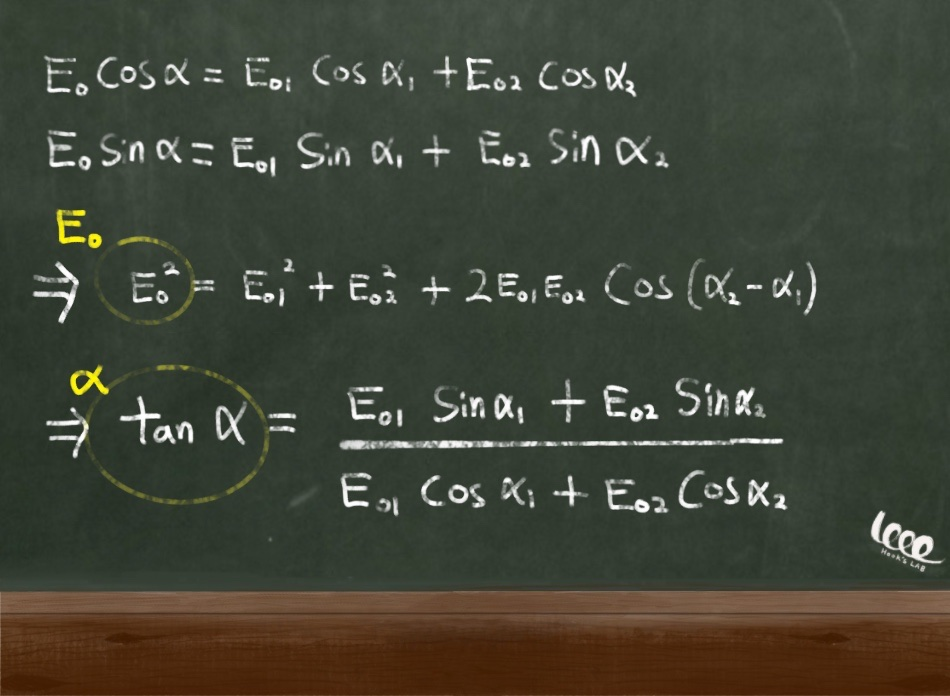 E₀ Cos α = E₀₁ Cos α₁ + E₀₂ Cos α₂
E₀ Sin α = E₀₁ Sin α₁ + E₀₂ Sin α₂
E₀
⇒ E₀² = E₀₁² + E₀₂² + 2E₀₁E₀₂ Cos (α₂ - α₁)
α
⇒ tan α = (E₀₁ Sin α₁ + E₀₂ Sin α₂) / (E₀₁ Cos α₁ + E₀₂ Cos α₂)
Hook's LAB